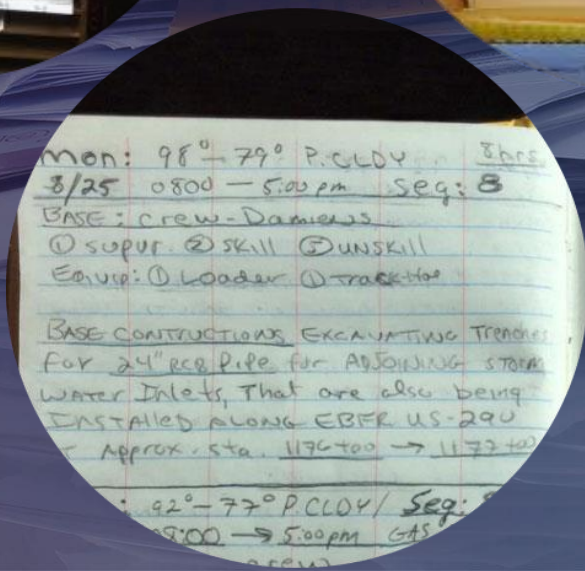 Mon: 98° - 79° P.CLDY 8hrs
8/25 0800 — 5:00pm Seg: 8
BASE: crew - Damiens
① supvr. ② SKill ⑤ UNSKill
Equip: ① Loader ① Track-Hoe
BASE CONTRUCTIONS EXCAVATING Trenches
for 24" RCB Pipe for ADJOINING STORM
WATER Inlets, That are also being
INSTALLED ALONG EBFR US-290
Approx. sta. 1176+00 → 1177+00
92° - 77° P.CLDY/ Seg:
08:00 → 5:00pm GAS
crew